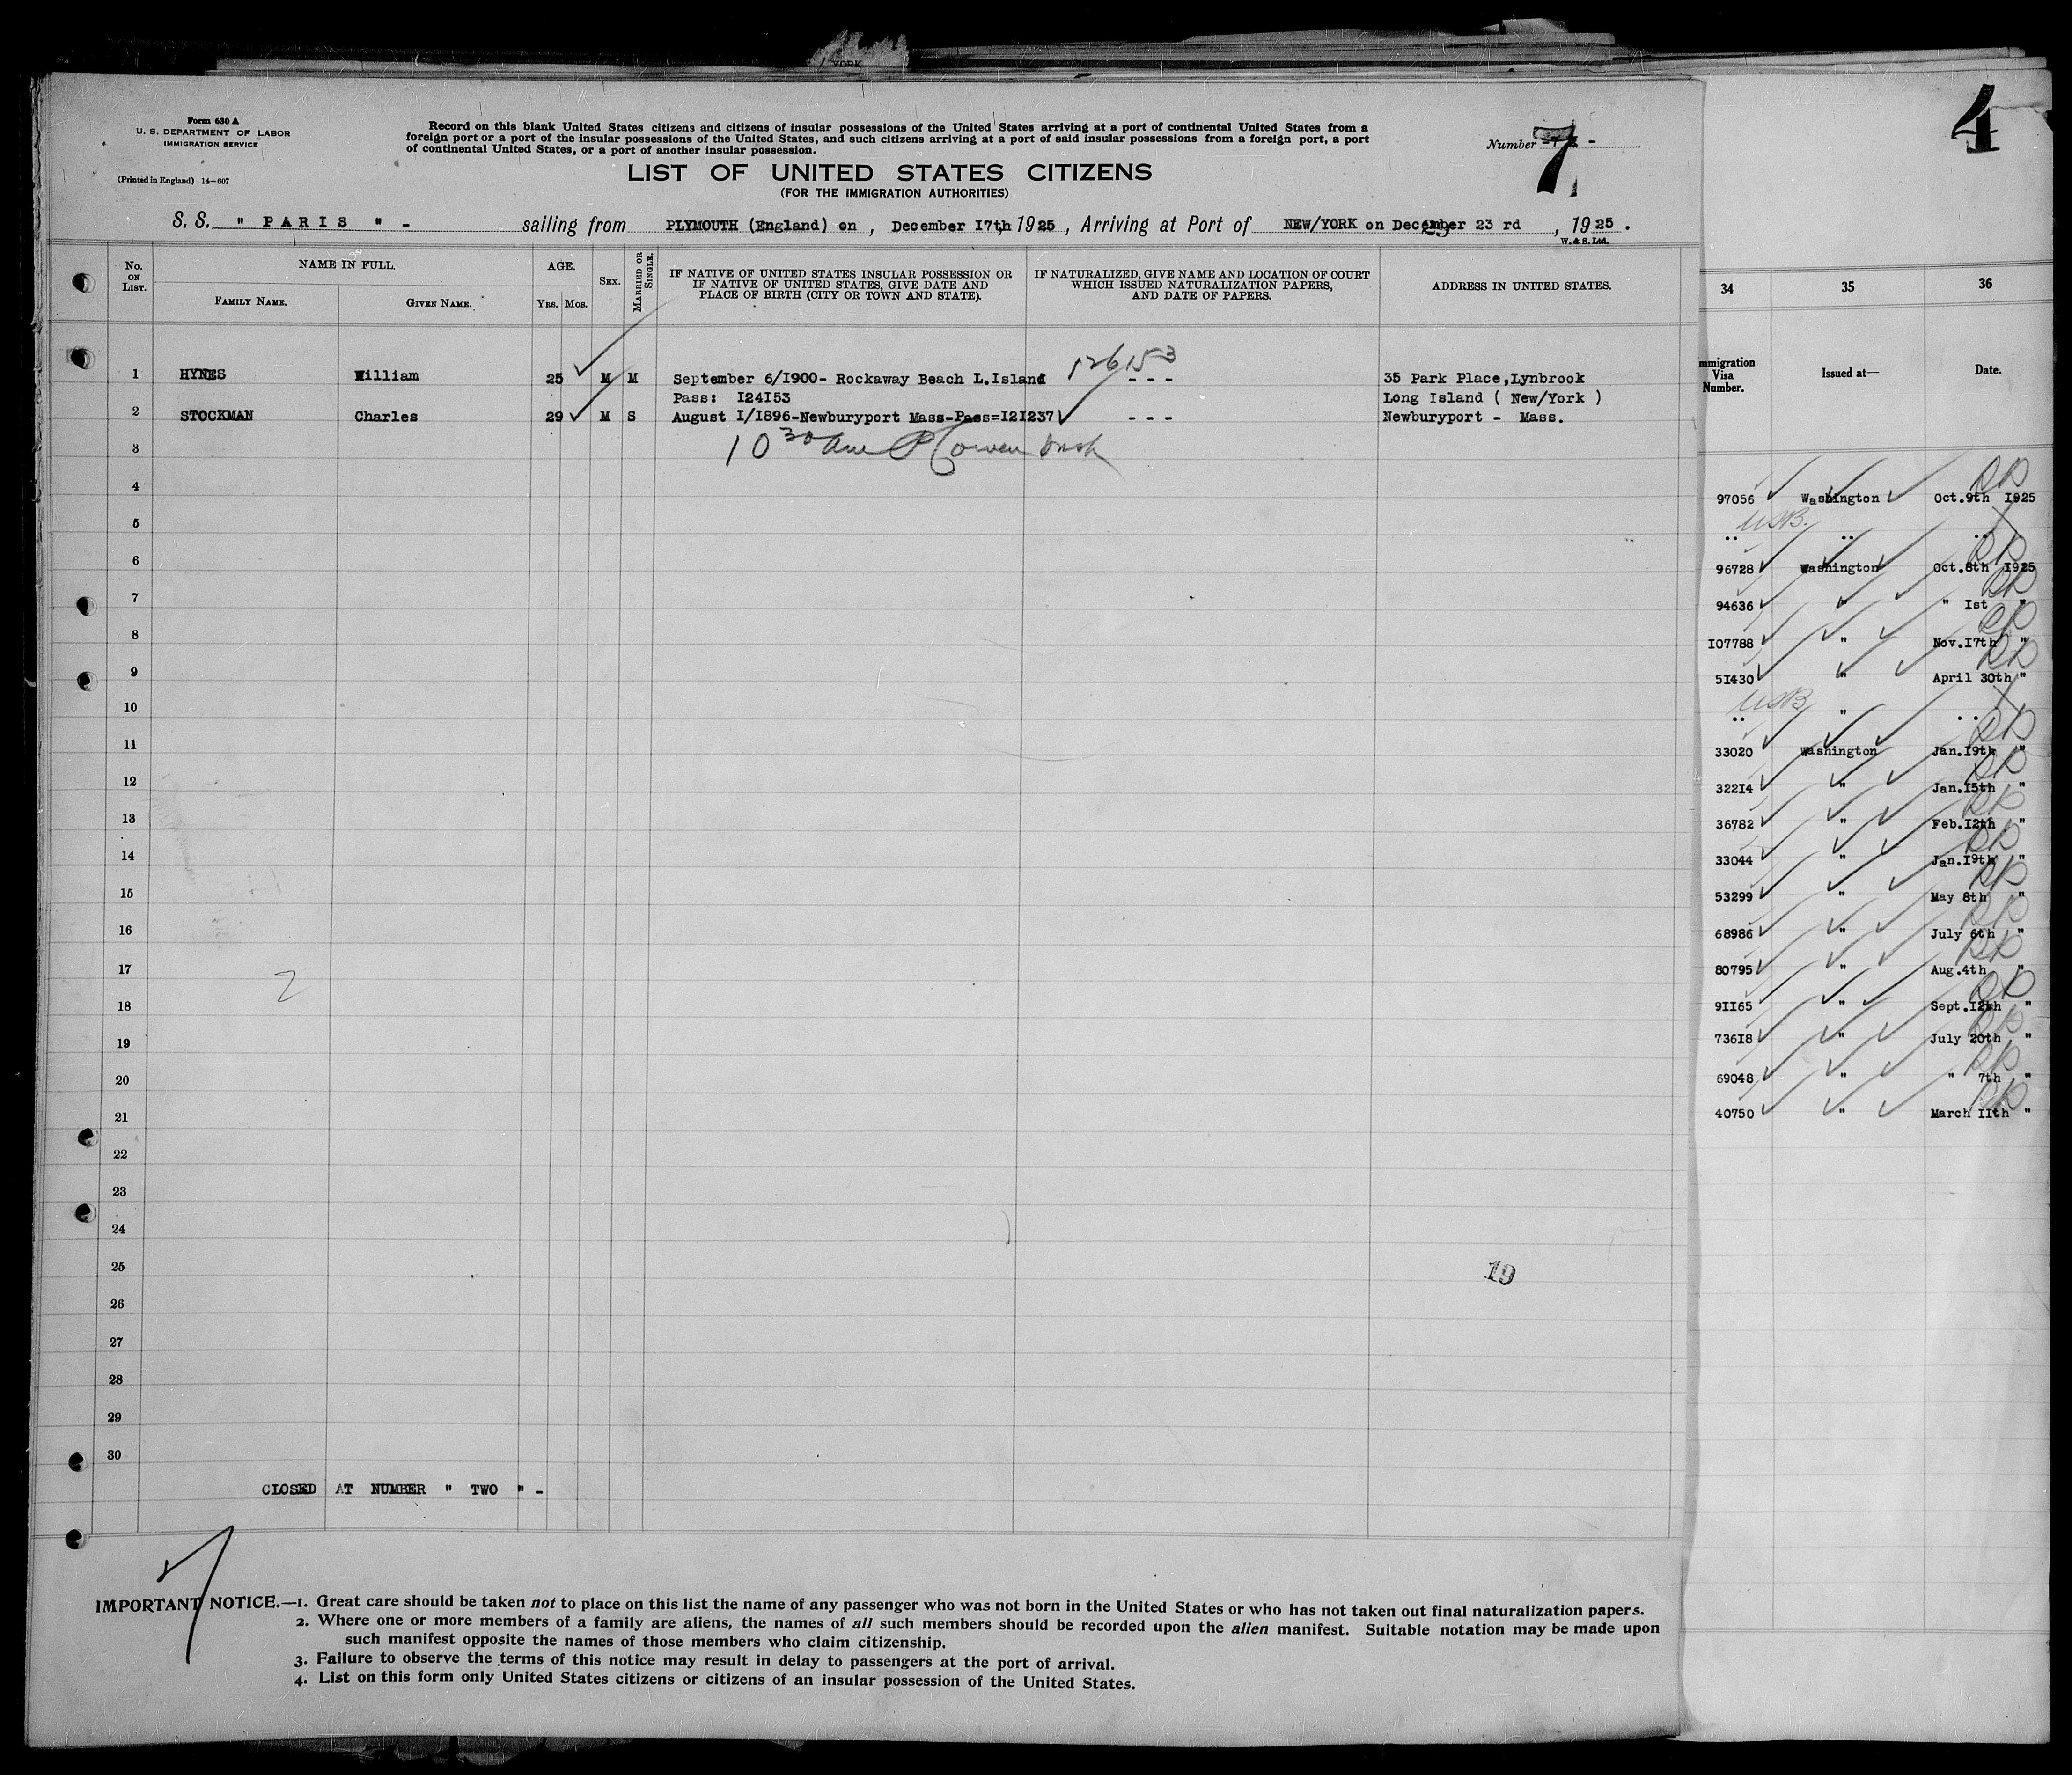 YORK
4
Form 630 A
U. S. DEPARTMENT OF LABOR
IMMIGRATION SERVICE
(Printed in England) 14-607
Record on this blank United States citizens and citizens of insular possessions of the United States arriving at a port of continental United States from a
foreign port or a port of the insular possessions of the United States, and such citizens arriving at a port of said insular possessions from a foreign port, a port
of continental United States, or a port of another insular possession.
Number 7 -
LIST OF UNITED STATES CITIZENS
(FOR THE IMMIGRATION AUTHORITIES)
S. S. " PARIS " - sailing from PLYMOUTH (England) on , December I7th 1925 , Arriving at Port of NEW/YORK on December 23 rd , 1925 .
W. & S. Ltd.
No. ON LIST.
NAME IN FULL.
FAMILY NAME.
GIVEN NAME.
AGE.
YRS. MOS.
SEX.
MARRIED OR SINGLE.
IF NATIVE OF UNITED STATES INSULAR POSSESSION OR
IF NATIVE OF UNITED STATES, GIVE DATE AND
PLACE OF BIRTH (CITY OR TOWN AND STATE).
IF NATURALIZED, GIVE NAME AND LOCATION OF COURT
WHICH ISSUED NATURALIZATION PAPERS,
AND DATE OF PAPERS.
ADDRESS IN UNITED STATES.
126153
1 HYNES William 25 M M September 6/I900- Rockaway Beach L.Island - - - 35 Park Place,Lynbrook
Pass: I24I53 Long Island ( New/York )
2 STOCKMAN Charles 29 M S August I/I896-Newburyport Mass-Pass=I2I237 - - - Newburyport - Mass.
3
4
5
6
7
8
9
10
11
12
13
14
15
16
17
18
19
20
21
22
23
24
25
19
26
27
28
29
30
CLOSED AT NUMBER " TWO " -
IMPORTANT NOTICE.—1. Great care should be taken not to place on this list the name of any passenger who was not born in the United States or who has not taken out final naturalization papers.
2. Where one or more members of a family are aliens, the names of all such members should be recorded upon the alien manifest. Suitable notation may be made upon
such manifest opposite the names of those members who claim citizenship.
3. Failure to observe the terms of this notice may result in delay to passengers at the port of arrival.
4. List on this form only United States citizens or citizens of an insular possession of the United States.
34 35 36
mmigration
Visa
Number.
Issued at—
Date.
97056 Washington Oct.9th I925
USB.
.. .. ..
96728 Washington Oct.8th I925
94636 " " Ist "
I07788 " Nov.I7th "
5I430 " April 30th "
USB
.. " ..
33020 Washington Jan.I9th "
322I4 " Jan.I5th "
36782 " Feb.I2th "
33044 " Jan.I9th "
53299 " May 8th "
68986 " July 6th "
80795 " Aug.4th "
9II65 " Sept.I2th "
736I8 " July 20th "
69048 " " 7th "
40750 " March IIth "